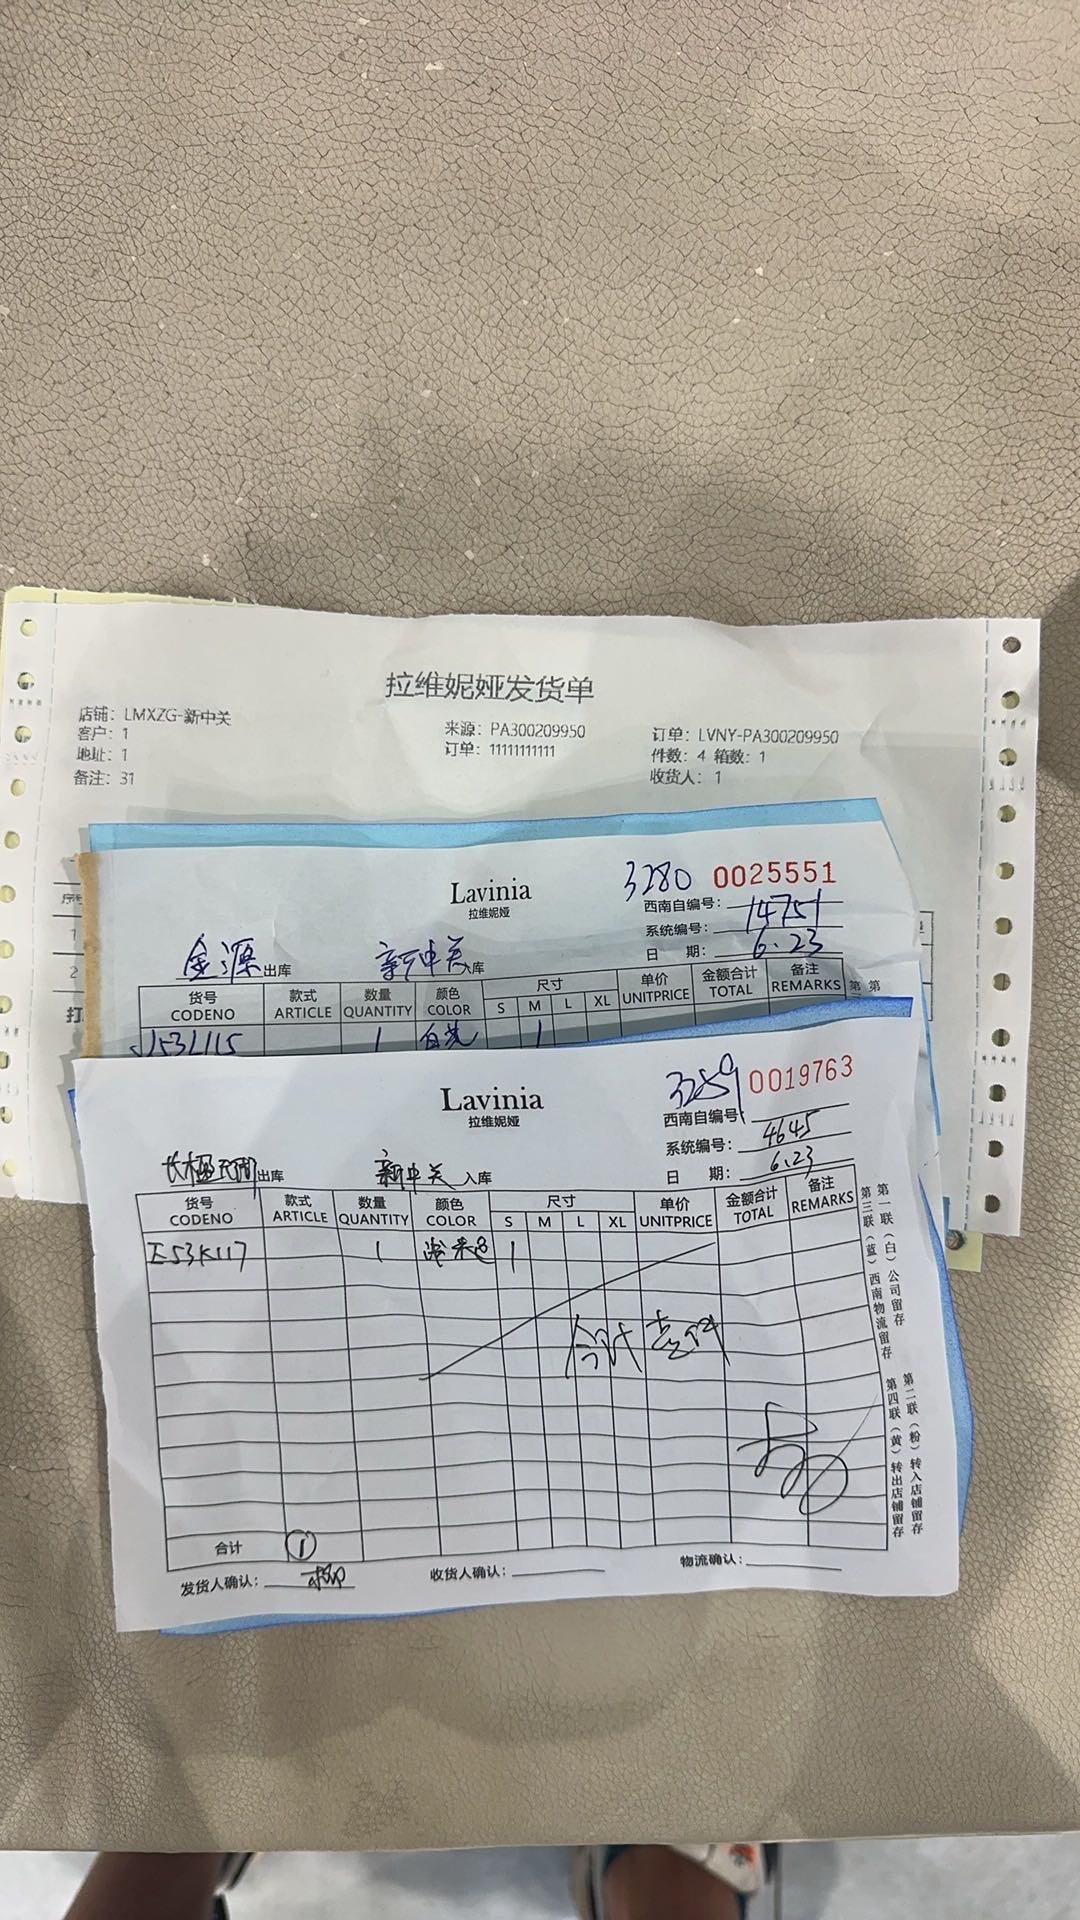 拉维妮娅发货单
店铺：LMXZG-新中关
来源：PA300209950
订单：LVNY-PA300209950
客户：1
订单：11111111111
件数：4 箱数：1
地址：1
收货人：1
备注：31
序
1
2
打
Lavinia
拉维妮娅
3280 0025551
西南自编号：
系统编号：14751
日 期：6.23
金源出库 新中关入库
货号 款式 数量 颜色 尺寸 单价 金额合计 备注
CODENO ARTICLE QUANTITY COLOR S M L XL UNITPRICE TOTAL REMARKS
J53L115 1 1
Lavinia
拉维妮娅
3289 0019763
西南自编号
系统编号：4645
日 期：6.23
出库 新中关入库
货号 款式 数量 颜色 尺寸 单价 金额合计 备注
CODENO ARTICLE QUANTITY COLOR S M L XL UNITPRICE TOTAL REMARKS
E53K117 1 1
合计壹件
合计 1
发货人确认： 柳
收货人确认：
物流确认：
第一联（白）公司留存
第二联（粉）转入店铺留存
第三联（蓝）西南物流留存
第四联（黄）转出店铺留存